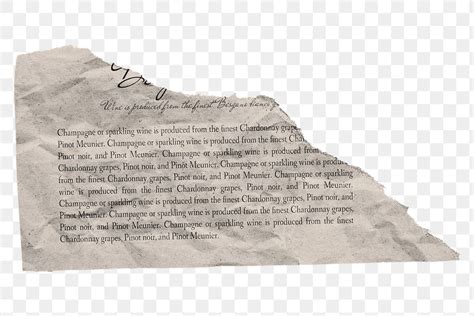 Wine is produced from the finest
Champagne or sparkling wine is produced from the finest Chardonnay grapes,
Pinot Meunier. Champagne or sparkling wine is produced from the finest
Pinot noir, and Pinot Meunier. Champagne or sparkling wine is produced
grapes, Pinot noir, and Pinot Meunier. Champagne or sparkling wine is produced
from the finest Chardonnay grapes, Pinot noir, and Pinot Meunier. Champagne or
sparkling wine is produced from the finest Chardonnay grapes, Pinot noir, and
Pinot Meunier. Champagne or sparkling wine is produced from the finest
Chardonnay grapes, Pinot noir, and Pinot Meunier. Champagne or sparkling wine
is produced from the finest Chardonnay grapes, Pinot noir, and Pinot Meunier.
and Pinot Meunier. Champagne or sparkling wine is produced from the finest
Chardonnay grapes, Pinot noir, and Pinot Meunier.